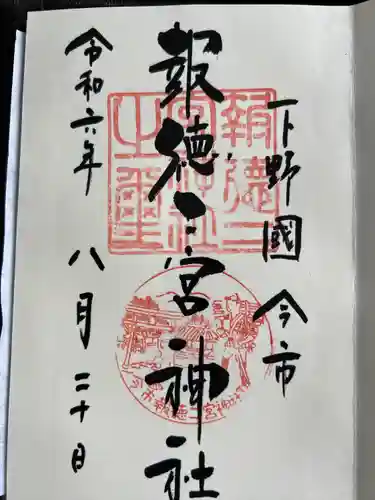 下野國 今市
報徳二宮神社
令和六年 八月二十日
報徳二
宮神社
之璽
今市報徳二宮神社